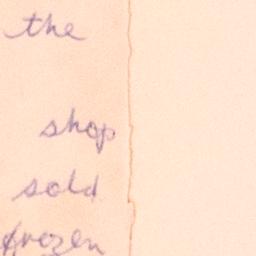 the
shop
sold
frozen